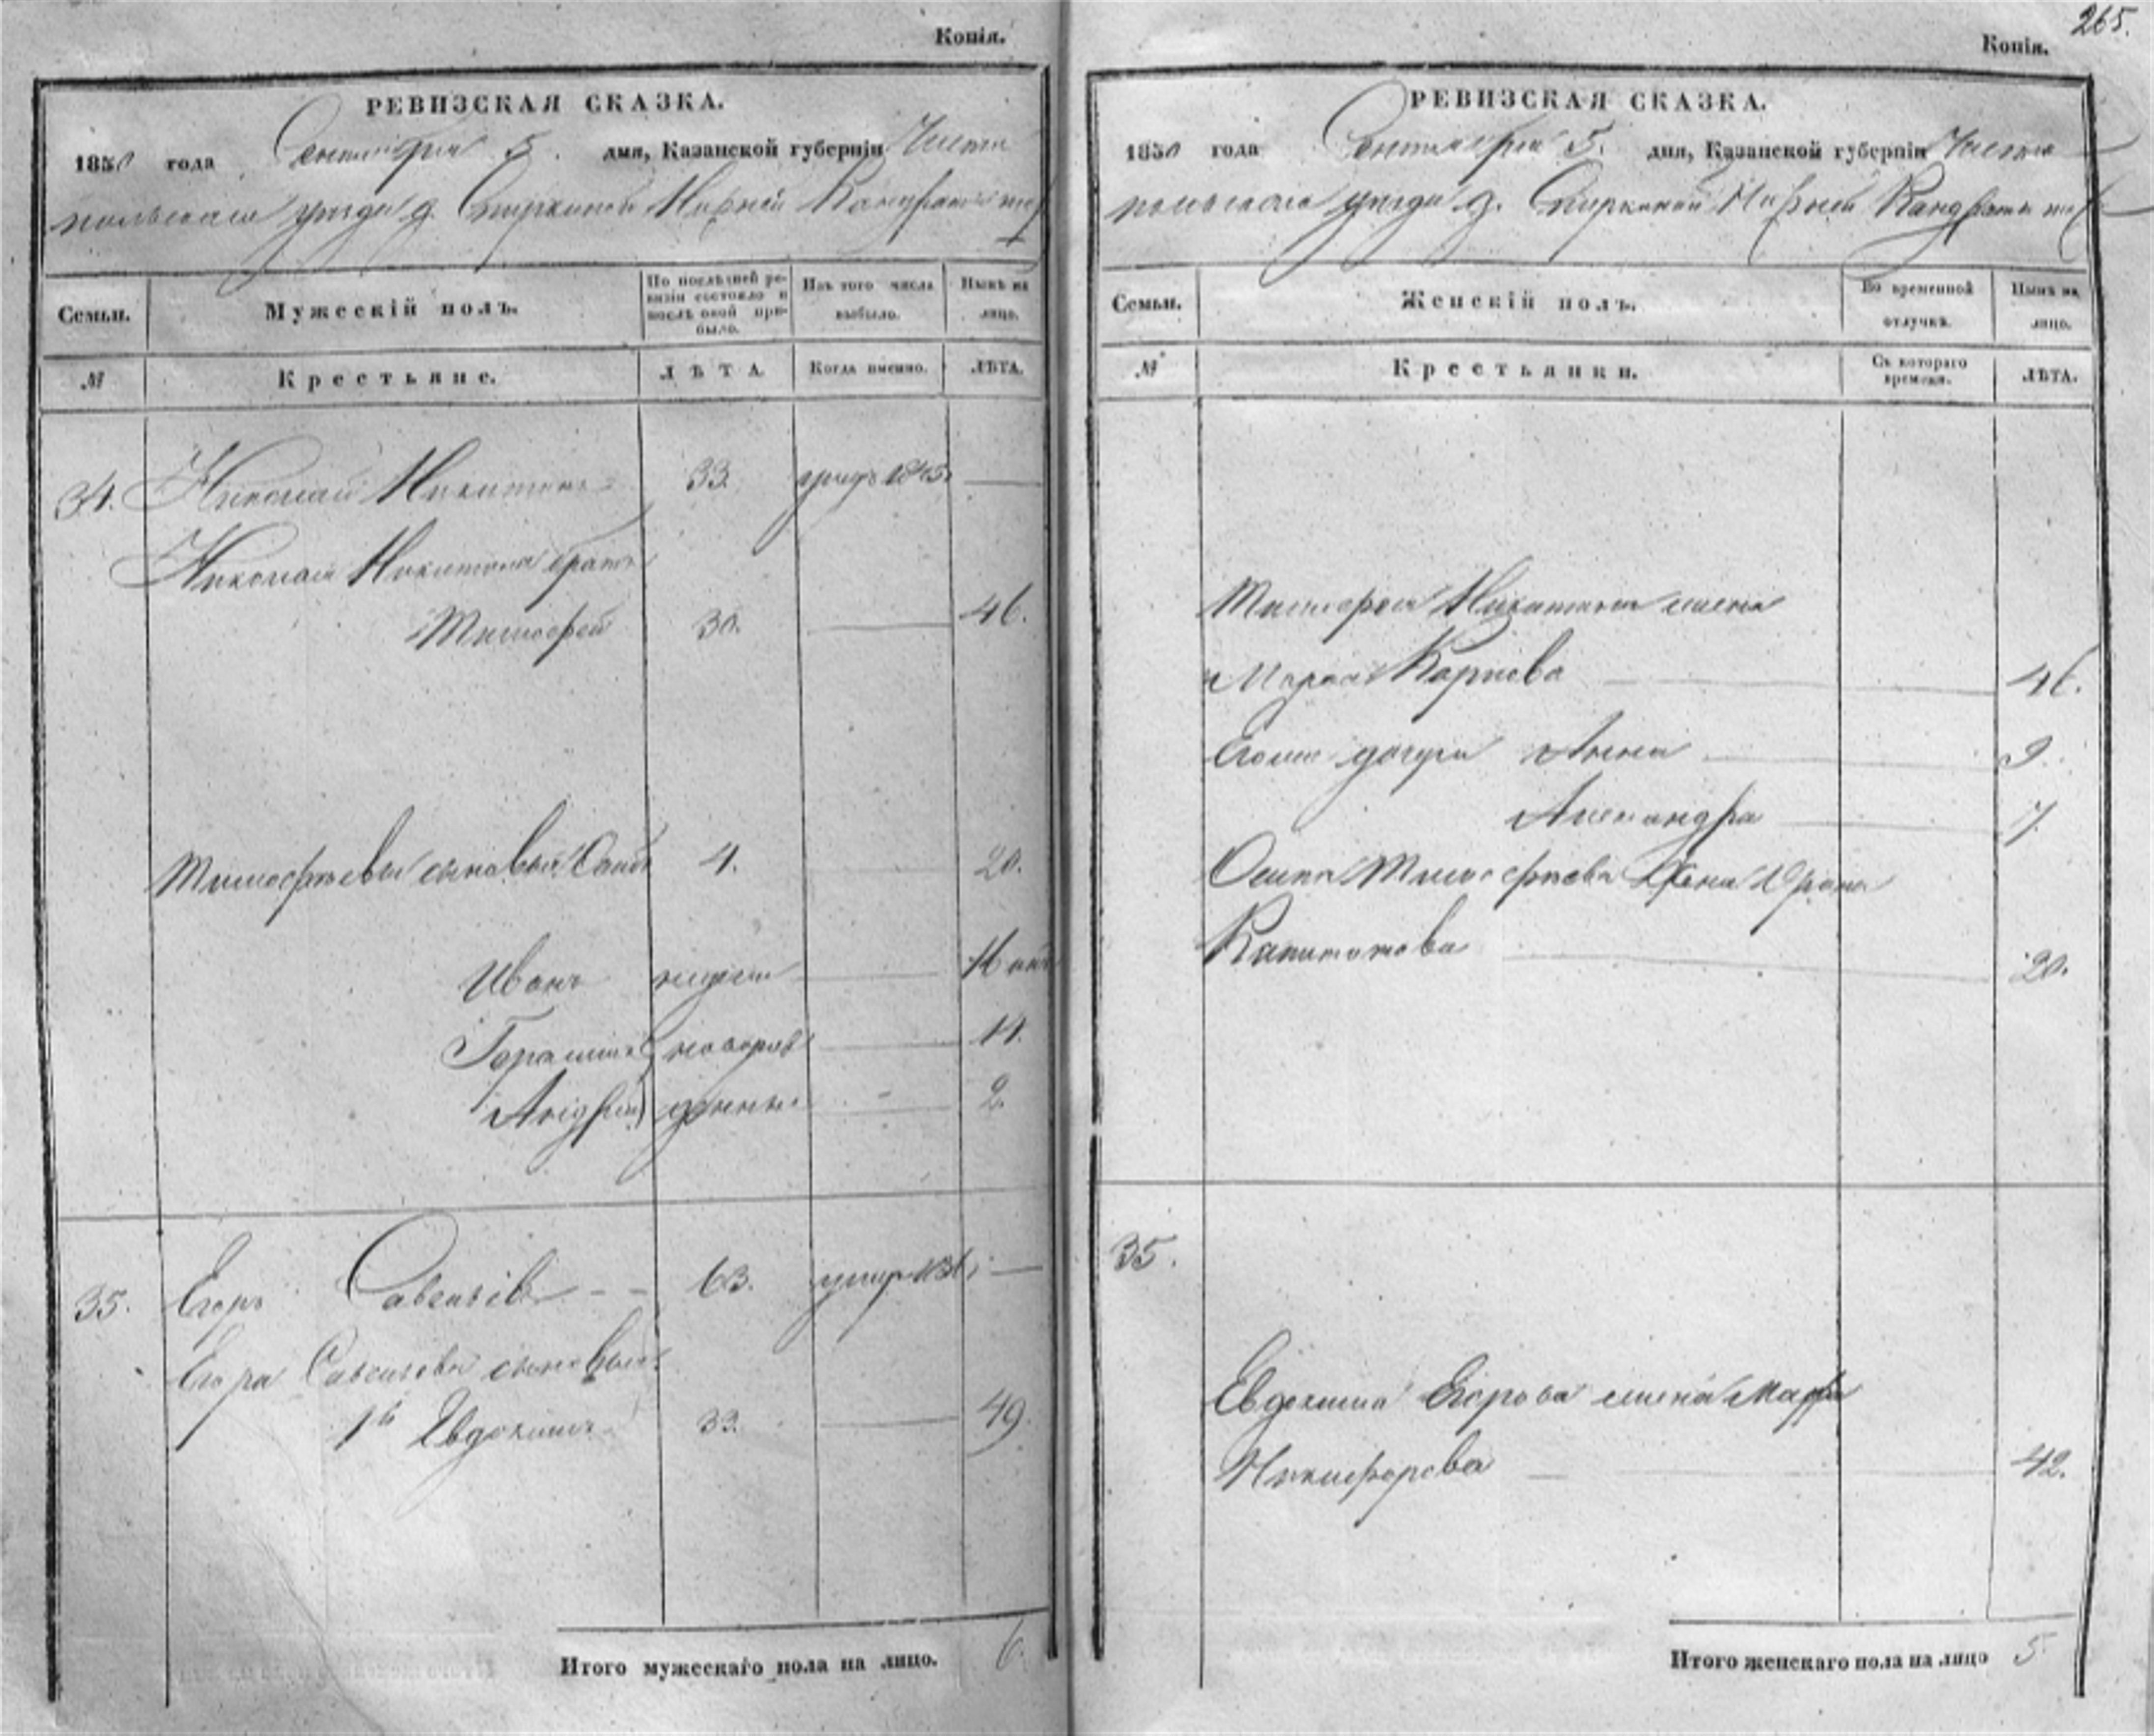 Копія.
РЕВИЗСКАЯ СКАЗКА.
1850 года Сентября 5. дня, Казанской губерніи Чисто
польскаго уезда д. Кандраты тож
Семьи. Мужескій полъ. По послѣдней ревизіи состояло и послѣ оной прибыло. Изъ того числа выбыло. Нынѣ на лицо.
№ Крестьяне. ЛѢТА. Когда именно. ЛѢТА.
34. Николай Никитинъ 33. умеръ 1845
Николая Никитина братъ
Тимофей 30. 46.
Тимофеевы сыновья 4. 20.
Иванъ недели 16
новорож
14.
Андрей денные 2.
35. Егоръ Савельевъ 63. умер
Егора Савельева сыновья
1й Евдокимъ 33. 49.
Итого мужескаго пола на лицо. 6.
265.
Копія.
РЕВИЗСКАЯ СКАЗКА.
1850 года Сентября 5. дня, Казанской губерніи Чисто
польскаго уезда д. Кандраты тож
Семьи. Женскій полъ. Во временной отлучкѣ. Нынѣ на лицо.
№ Крестьянки. Съ котораго времени. ЛѢТА.
Тимофея Никитина жена
Марья Карпова 46.
Егоже дочери Анна 9.
Александра 7.
Осипа Тимофеева жена
Капитонова 20.
35.
Евдокима Егорова жена Марфа
Никифорова 42.
Итого женскаго пола на лицо 5